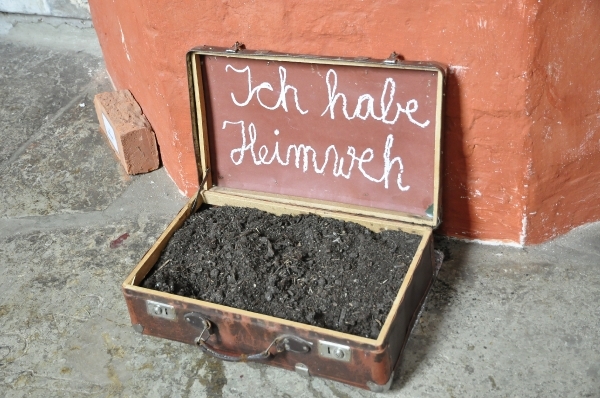 Ich habe
Heimweh